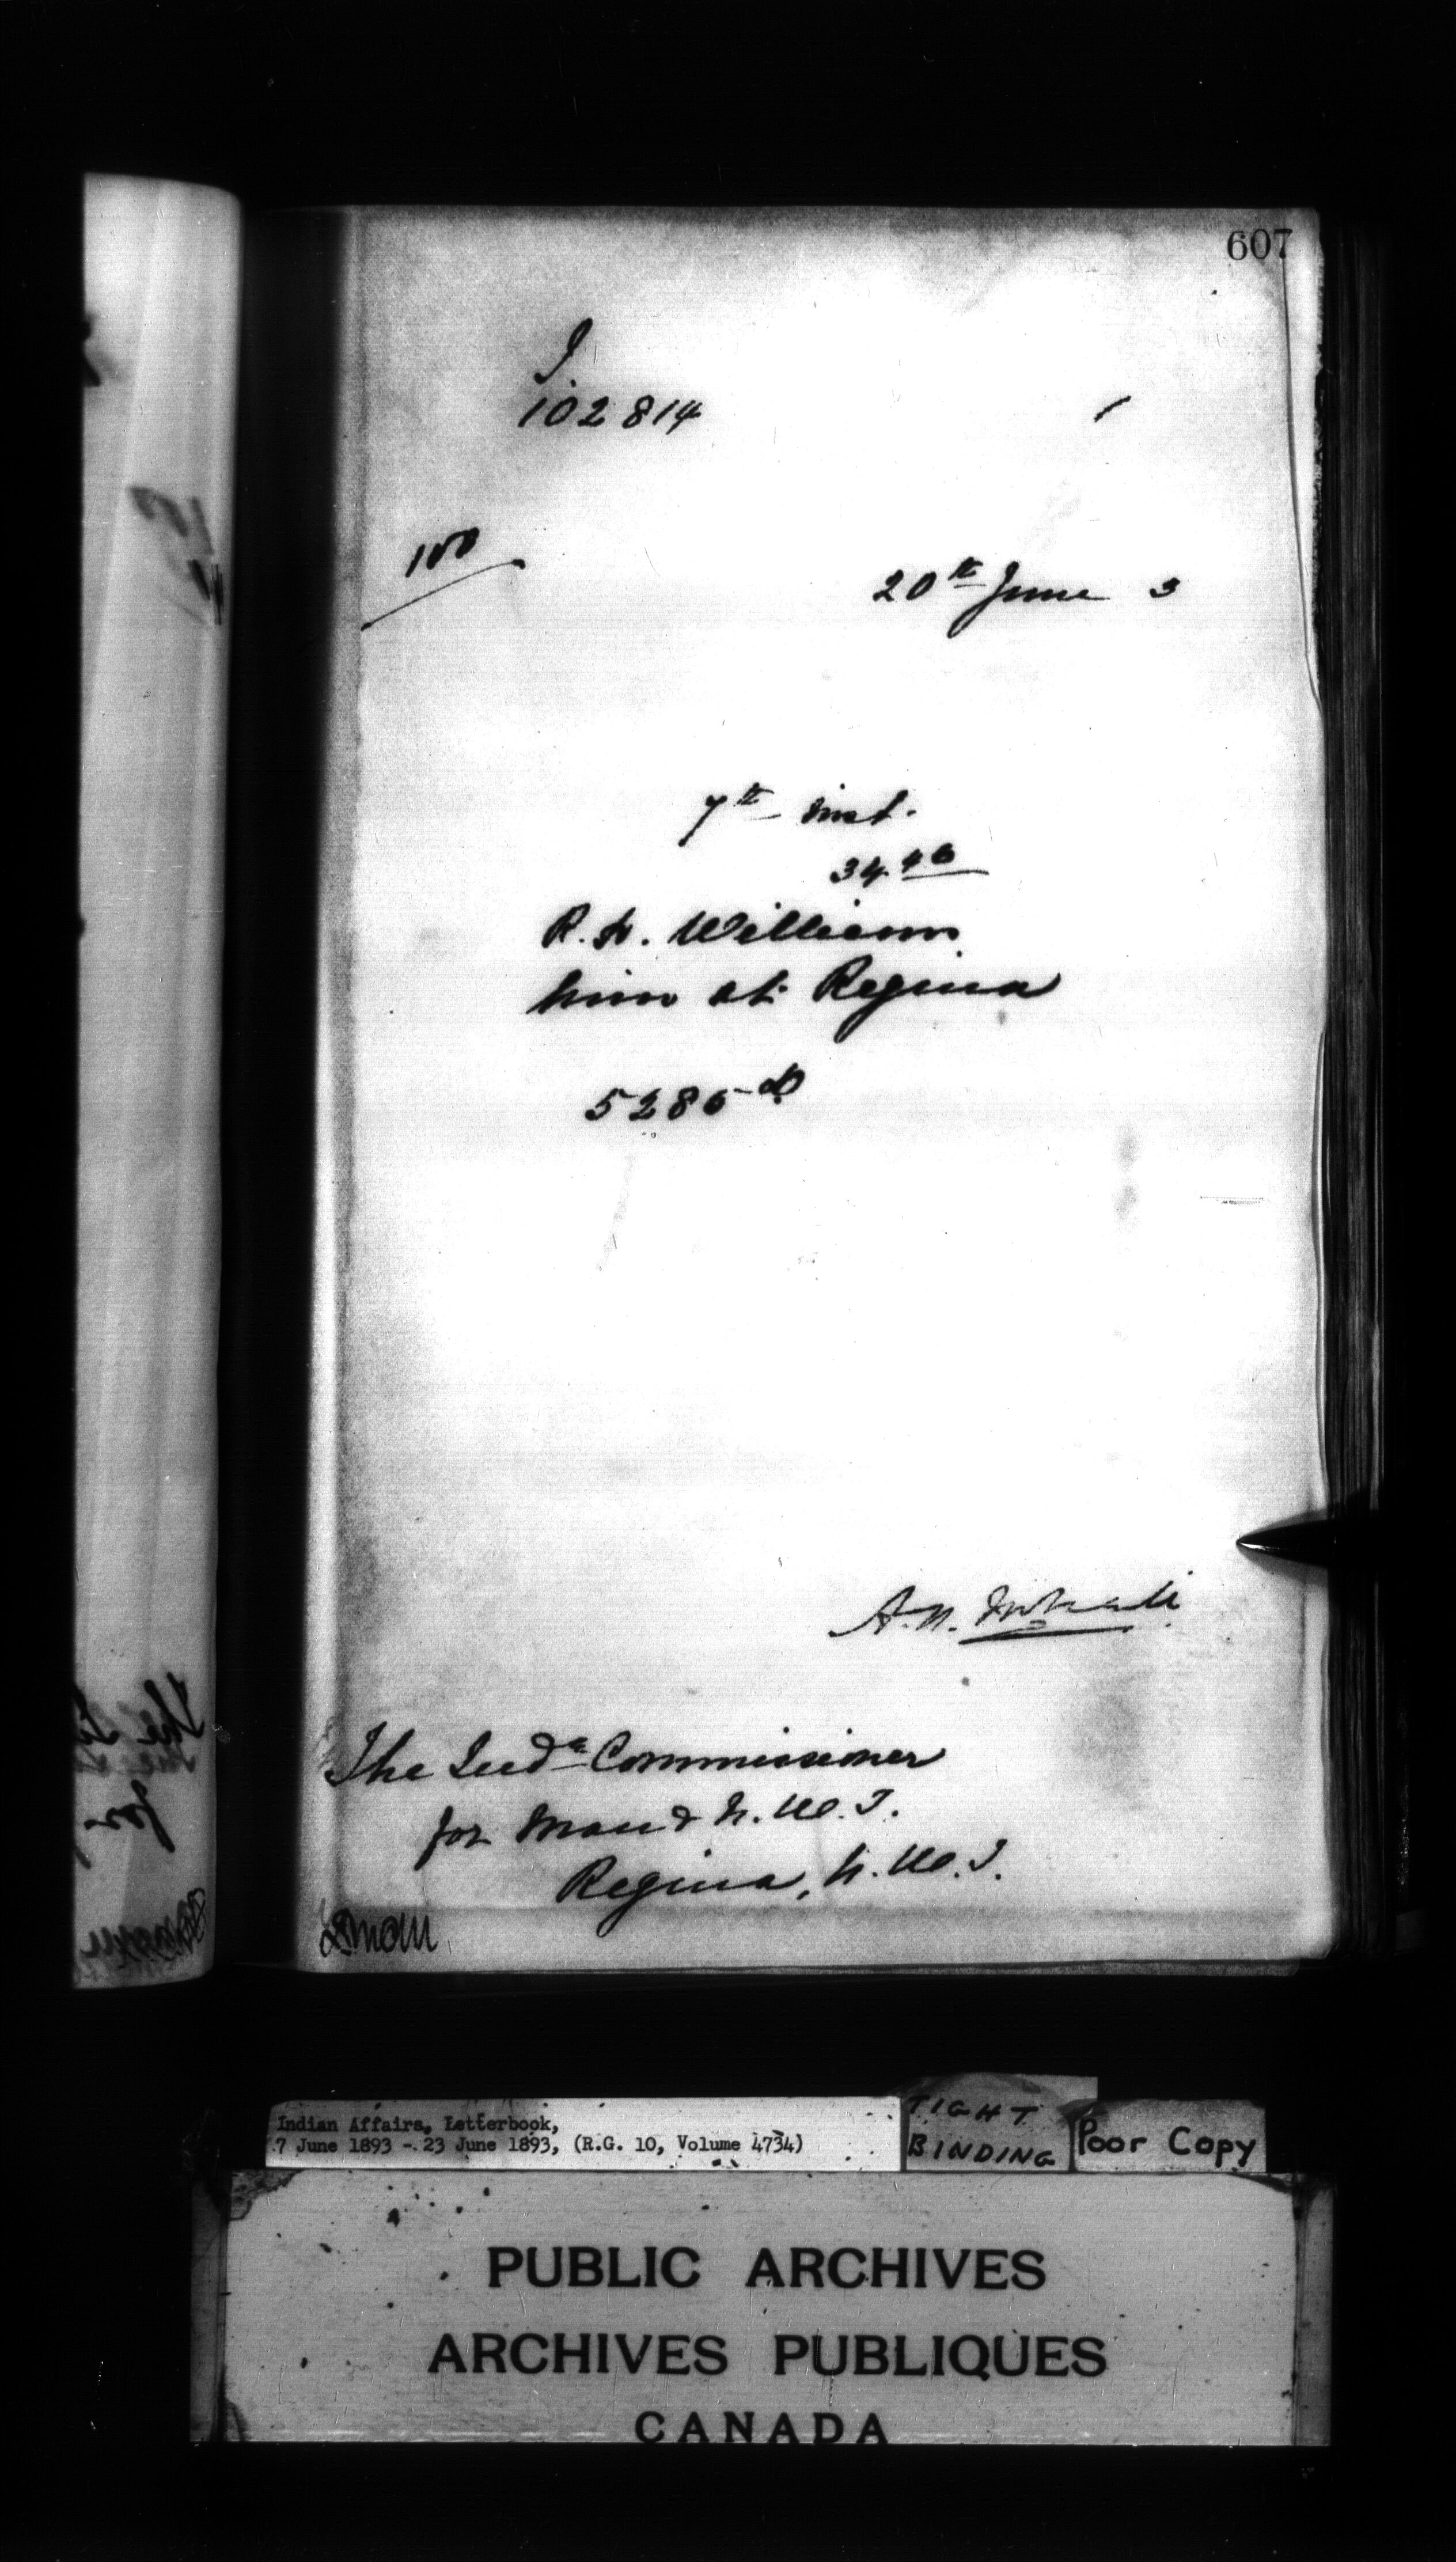 607
I
102814
100
20th June 3
7th inst.
34.46
R. H. Williams
him at Regina
5286
A.N.
The Indn Commissioner
for Man & N.W.T.
Regina, N.W.T.
Indian Affairs, Letterbook,
7 June 1893 - 23 June 1893, (R.G. 10, Volume 4734)
TIGHT
BINDING
Poor Copy
PUBLIC ARCHIVES
ARCHIVES PUBLIQUES
CANADA